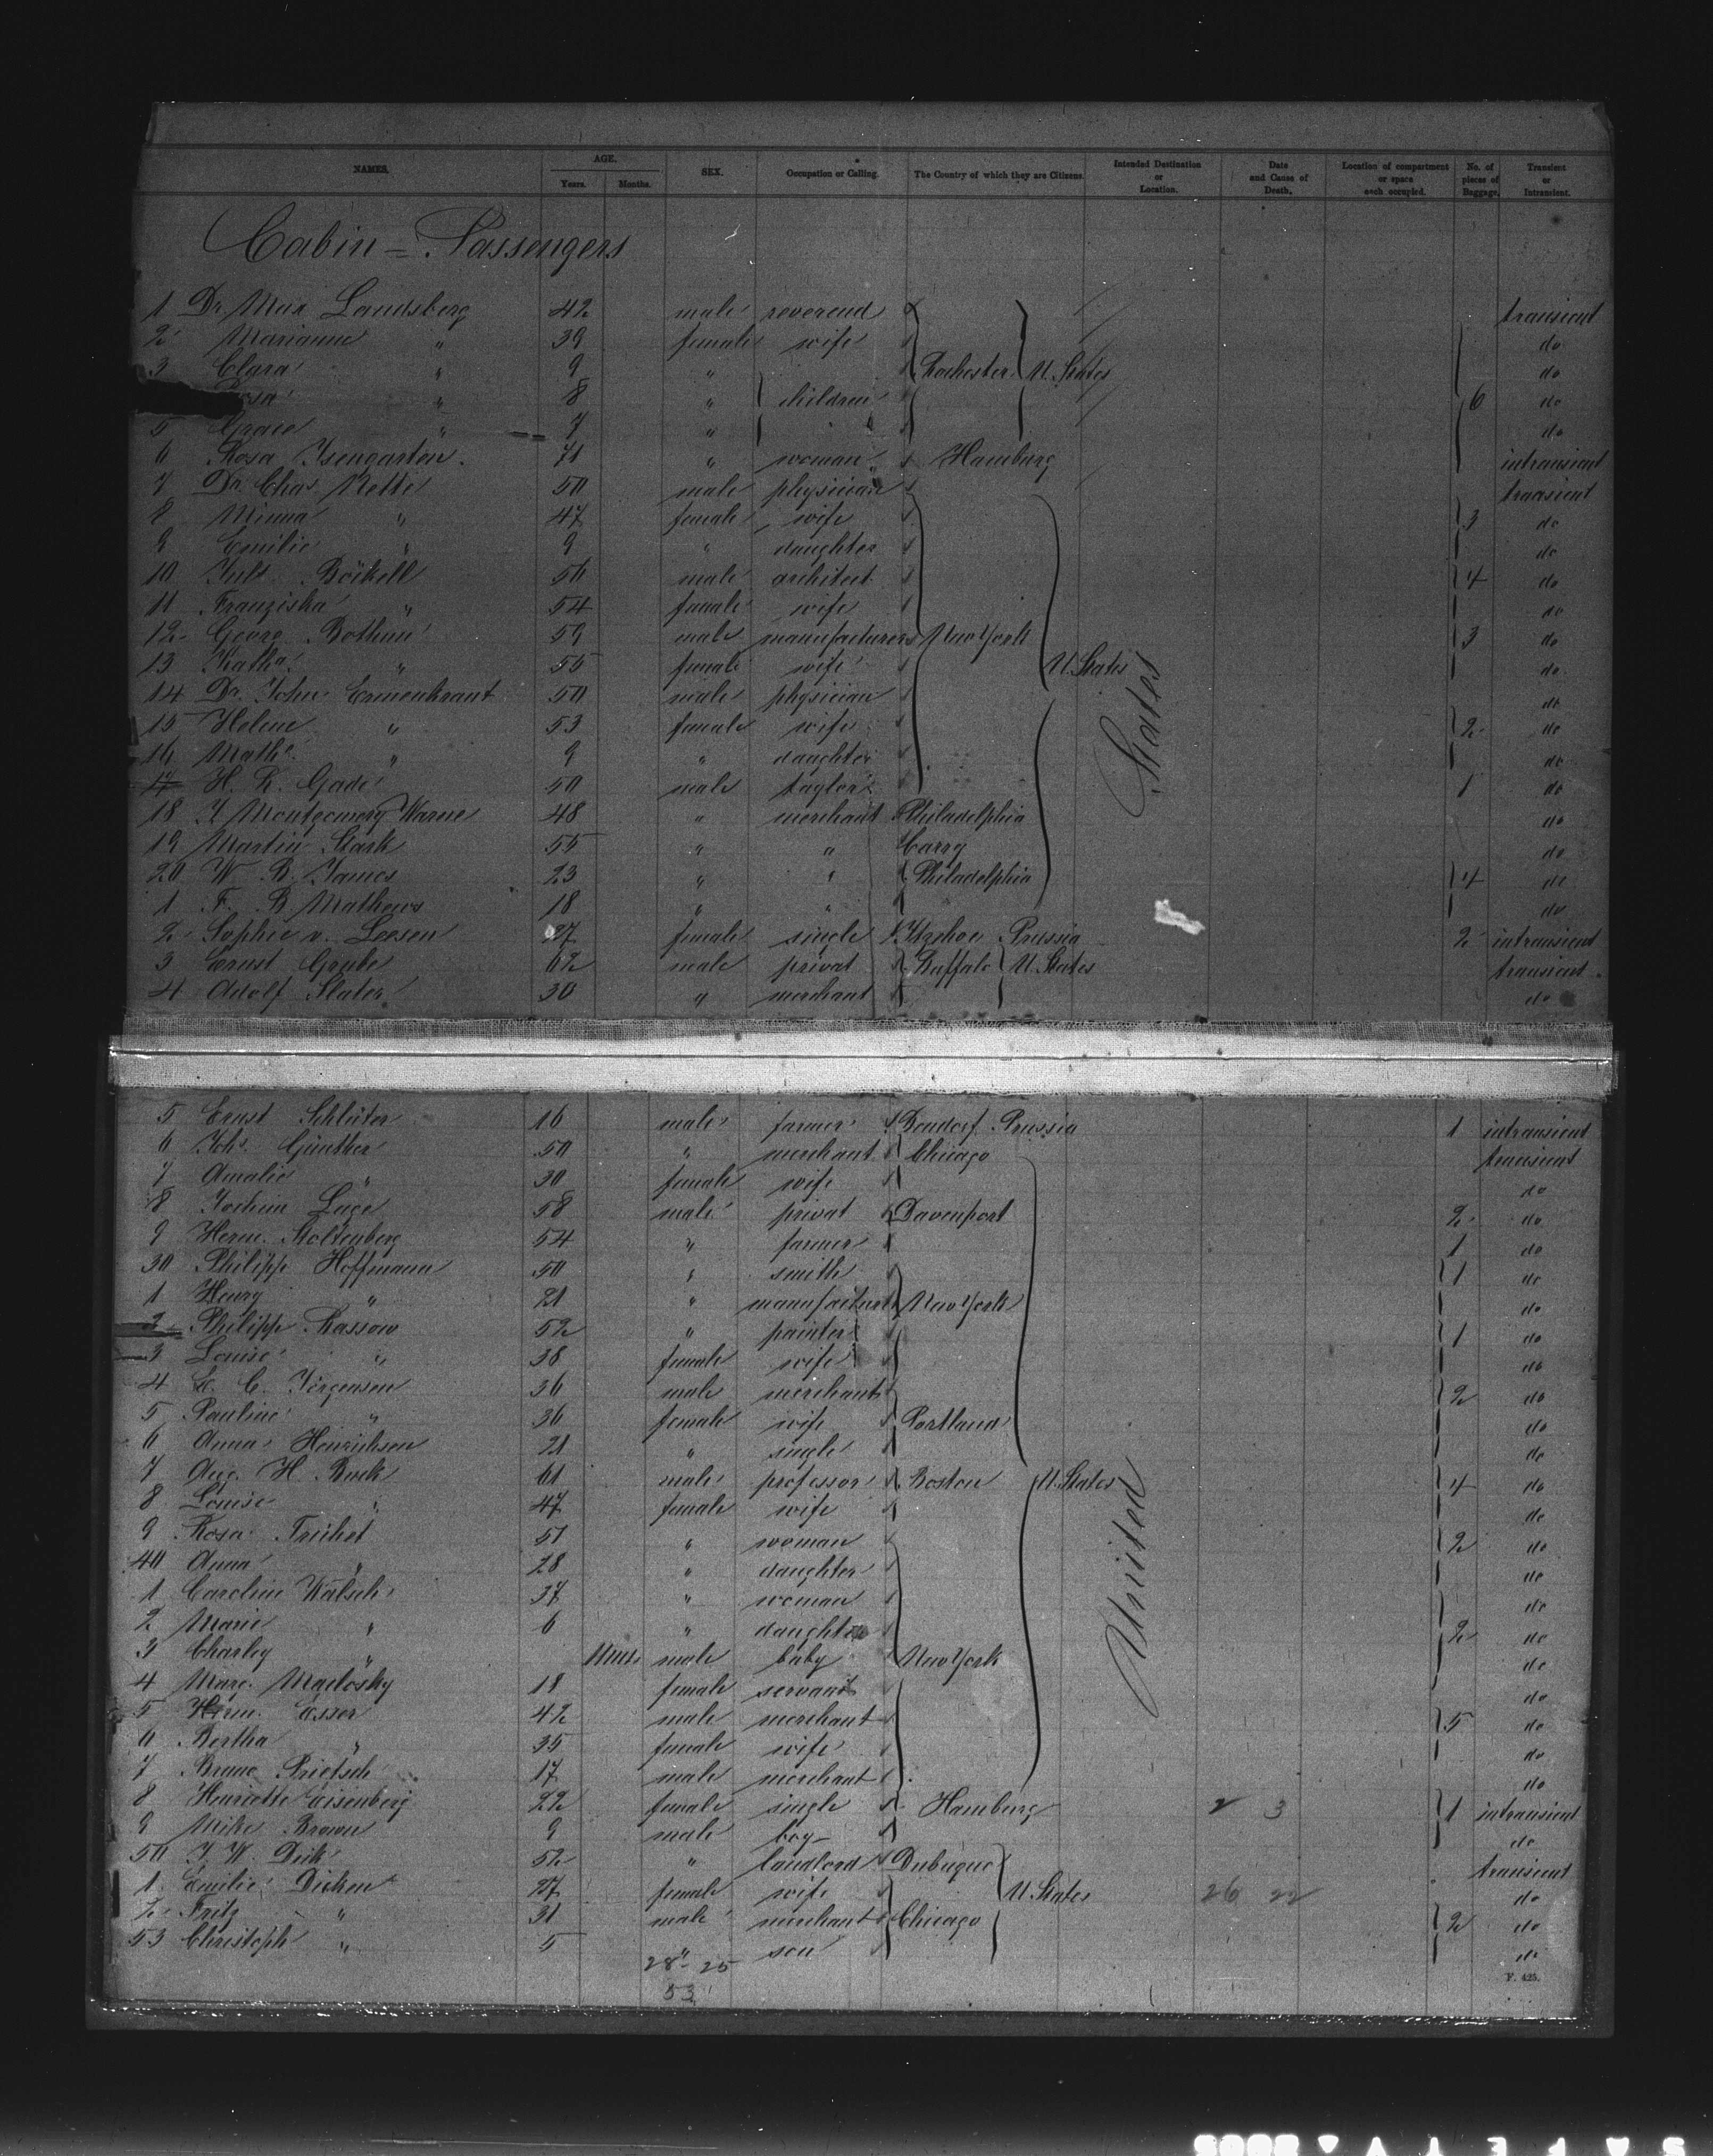 NAMES. AGE. Years. Months. SEX. Occupation or Calling. The Country of which they are Citizens. Intended Destination or Location. Date and Cause of Death. Location of compartment or space each occupied. No. of pieces of Baggage. Transient or Intransient.
Cabin = Passengers
1 Dr. Max Landsberg 42 male reverend transient
2 Marianne " 39 female wife do
3 Clara " 9 " Rochester U. States do
" 8 " children 6 do
5 Grace " 7 " " do
6 Rosa Isengarten. 71 " woman Hamburg intransient
7 Dr. Chas. 50 male physician transient
8 Minna " 47 female wife 3 do
9 Emilie " 9 " daughter do
10 56 male architect 4 do
11 Franziska " 54 female wife do
12 Georg 59 male manufacturer New York 3 do
13 Katha. " 55 female wife U. States do
14 Dr. John Ermenkraut 50 male physician do
15 Helene " 53 female wife 2 do
16 Mathe. " 9 " daughter do
17 H. R. Gade 50 male taylor 1 do
18 Montgomery Warne 48 " merchant Philadelphia do
19 Martin Stark 55 " " Carry do
20 W. B. James 23 " " Philadelphia 4 do
1 F. B. Mathews 18 " " do
2 Sophie v. Leesen 27 female single Itzehoe Prussia 2 intransient
3 Ernst Grube 62 male privat Buffalo U. States transient
4 Adolf Slater 30 " merchant do
5 Ernst Schlüter 16 male farmer Prussia 1 intransient
6 Johs. Günther 50 " merchant Chicago transient
7 Amalie " 30 female wife do
8 Jochim Lage 58 male privat Davenport 2 do
9 Herm. Stoltenberg 54 " farmer 1 do
30 Philipp Hoffmann 50 " smith 1 do
1 Henry " 21 " manufacturer New York do
2 Philipp Kassow 52 " painter 1 do
3 Louise " 38 female wife do
4 C. Jörgensen 36 male merchant 2 do
5 Pauline " 36 female wife Portland do
6 Anna Henrichsen 21 " single do
7 Aug. H. Buck 61 male professor Boston U. States 4 do
8 Louise " 47 female wife do
9 Rosa 51 " woman 2 do
40 Anna " 28 " daughter do
1 Caroline Walsch 37 " woman do
2 Marie " 6 " daughter 2 do
3 Charley " male baby New York do
4 Marg. 18 female servant do
5 Herm. Esser 42 male merchant 5 do
6 Bertha " 35 female wife do
7 Bruno Prietsch 17 male merchant do
8 Henriette Eisenberg 22 female single Hamburg 2 3 1 intransient
9 Mike Brown 9 male boy do
50 J. W. Dick 52 " landlord Dubuque transient
1 Emilie Dicken 27 female wife U. States 26 22 do
2 Fritz " 31 male merchant Chicago 2 do
53 Christoph " 5 " son do
28 - 25
53
United States
F. 425.